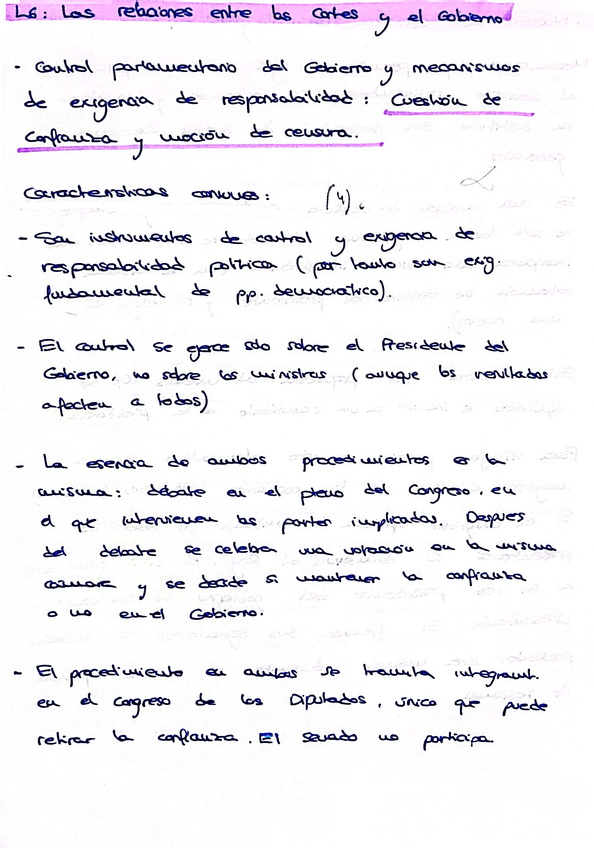 L6: Las relaciones entre las Cortes y el Gobierno
· Control parlamentario del Gobierno y mecanismos
de exigencia de responsabilidad: Cuestión de
Confianza y moción de censura.
Características comunes: (4).
- Son instrumentos de control y exigencia de
responsabilidad política (por tanto son exig.
fundamental de pp. democrático).
- El control se ejerce sólo sobre el Presidente del
Gobierno, no sobre los ministros (aunque los resultados
afecten a todos)
- La esencia de ambos procedimientos es la
misma: debate en el pleno del Congreso, en
el que intervienen las partes implicadas. Despues
del debate se celebra una votación en la misma
cámara y se decide si mantener la confianza
o no en el Gobierno.
- El procedimiento en ambos se tramita integramt.
en el Congreso de los Diputados, único que puede
retirar la confianza. El senado no participa